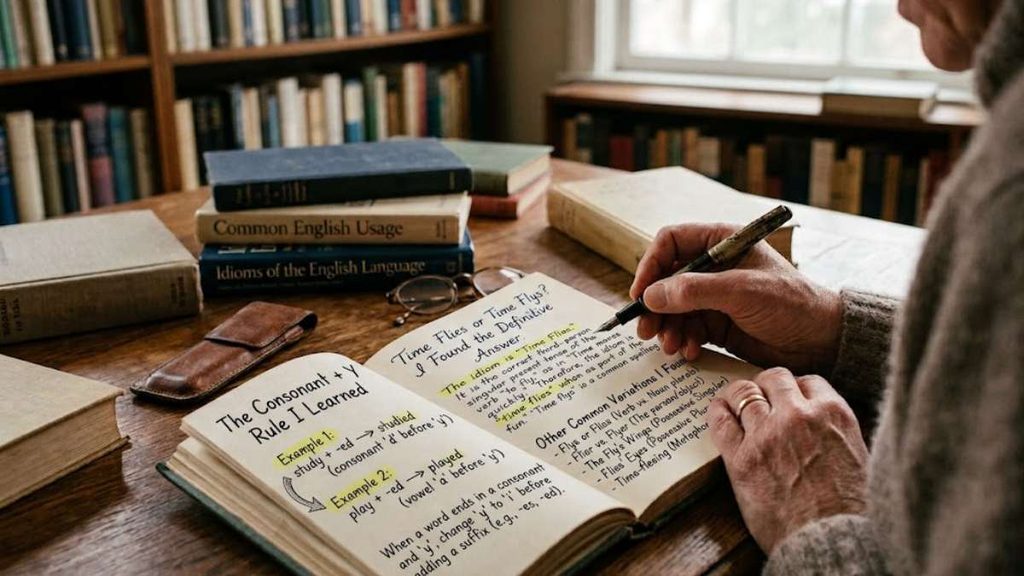 Common English Usage
Idioms of the English Language
The Consonant + Y
Rule I Learned
Example 1:
study + -ed → studied
(consonant 'd' before 'y')
Example 2:
play + -ed → played
(vowel 'a' before 'y')
When a word ends in a consonant
and 'y', change 'y' to 'i' before
adding a suffix (e.g., -es, -ed).
Time Flies or Time Flys?
I Found the Definitive
Answer.
The idiom is "Time Flies"
It is the correct third-person
singular present tense of the
verb "to fly," as in "Time moves
quickly." Therefore, the idiom is
"time flies when as part of having
fun." "Time flys" is a common spelling
Other Common Variations I Found
- Flys or Flies (Verb vs Noun plural)
- Flier vs Flyer (The person/object)
- The Fly's Wings (Possessive Singular)
- Flies' Eyes (Possessive Plural)
- Time-flesing (Metaphor